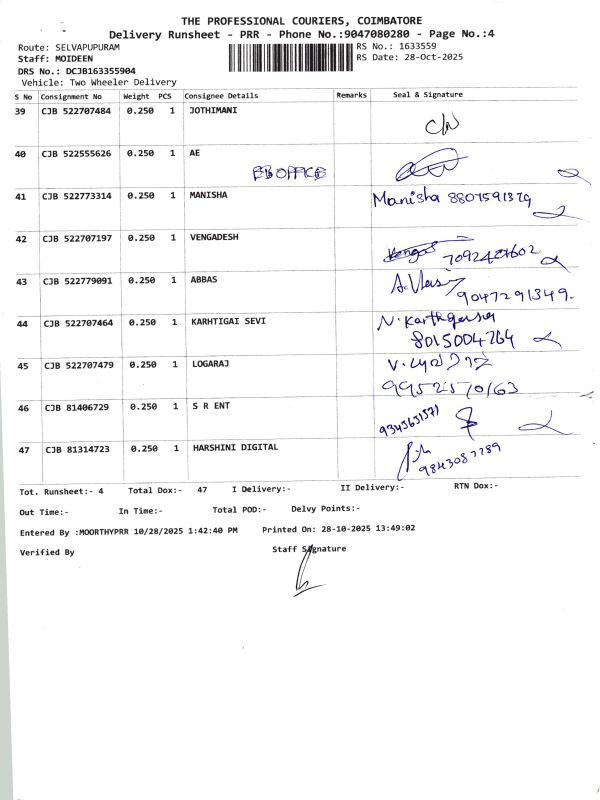 THE PROFESSIONAL COURIERS, COIMBATORE
Delivery Runsheet - PRR - Phone No.:9047080280 - Page No.:4
Route: SELVAPUPURAM RS No.: 1633559
Staff: MOIDEEN RS Date: 28-Oct-2025
DRS No.: DCJB163355904
Vehicle: Two Wheeler Delivery
S No Consignment No Weight PCS Consignee Details Remarks Seal & Signature
39 CJB 522707484 0.250 1 JOTHIMANI
40 CJB 522555626 0.250 1 AE
EB OFFICE
41 CJB 522773314 0.250 1 MANISHA Manisha 8807591379
42 CJB 522707197 0.250 1 VENGADESH
43 CJB 522779091 0.250 1 ABBAS
9047291349
44 CJB 522707464 0.250 1 KARHTIGAI SEVI
8015004764
45 CJB 522707479 0.250 1 LOGARAJ
9952570163
46 CJB 81406729 0.250 1 S R ENT
47 CJB 81314723 0.250 1 HARSHINI DIGITAL
9843087789
Tot. Runsheet:- 4 Total Dox:- 47 I Delivery:- II Delivery:- RTN Dox:-
Out Time:- In Time:- Total POD:- Delvy Points:-
Entered By :MOORTHYPRR 10/28/2025 1:42:40 PM Printed On: 28-10-2025 13:49:02
Verified By Staff Signature